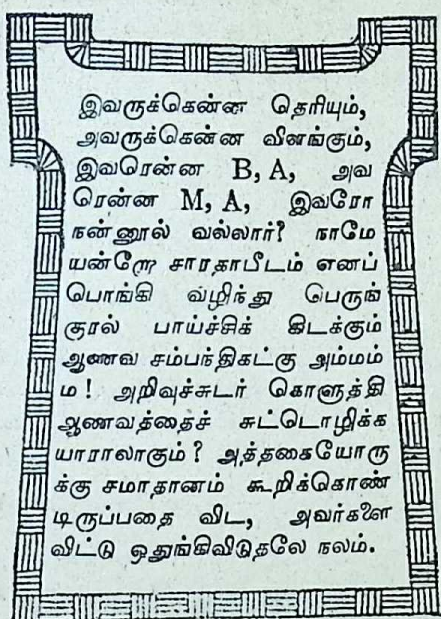 இவருக்கென்ன தெரியும்,
அவருக்கென்ன விளங்கும்,
இவரென்ன B, A, அவ
ரென்ன M, A, இவ்ரோ
நன்னூல் வல்லார்? நாமே
யன்றோ சாரதாபீடம் எனப்
பொங்கி வழிந்து பெருங்
குரல் பாய்ச்சிக் கிடக்கும்
ஆணவ சம்பந்திகட்கு அம்மம்
ம! அறிவுச்சுடர் கொளுத்தி
ஆணவத்தைச் சுட்டொழிக்க
யாராலாகும்? அத்தகையோரு
க்கு சமாதானம் கூறிக்கொண்
டிருப்பதை விட, அவர்களை
விட்டு ஒதுங்கிவிடுதலே நலம்.